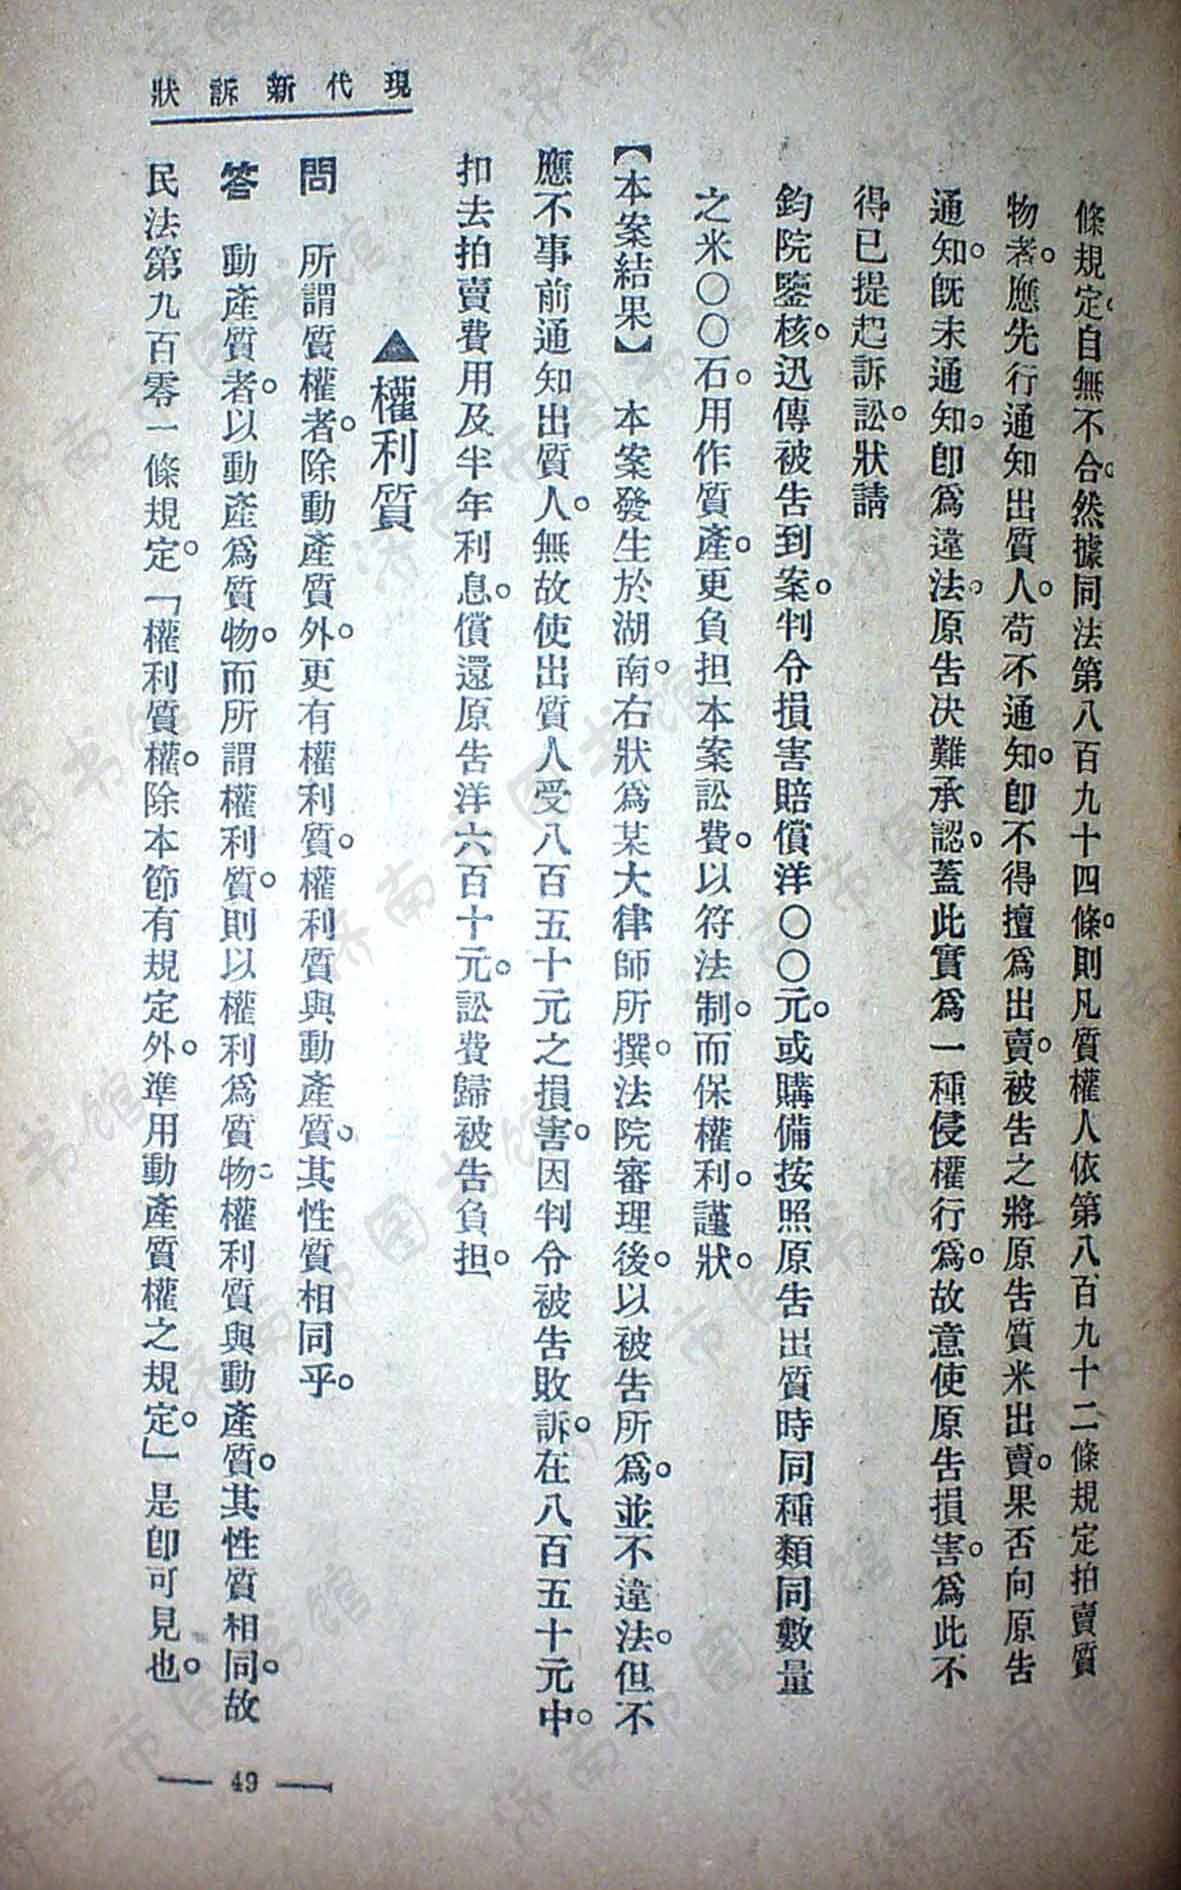 現代新訴狀
條規定。自無不合。然據同法第八百九十四條。則凡質權人依第八百九十二條規定拍賣質
物者。應先行通知出質人。苟不通知。卽不得擅爲出賣。被告之將原告質米出賣。果否向原告
通知。旣未通知。卽爲違法。原告决難承認。蓋此實爲一種侵權行爲。故意使原告損害。爲此不
得已提起訴訟。狀請
鈞院鑒核。迅傳被告到案。判令損害賠償洋〇〇元。或購備按照原告出質時同種類同數量
之米〇〇石。用作質產。更負担本案訟費。以符法制。而保權利。謹狀。
【本案結果】 本案發生於湖南。右狀爲某大律師所撰。法院審理後。以被告所爲。並不違法。但不
應不事前通知出質人。無故使出質人受八百五十元之損害。因判令被告敗訴。在八百五十元中。
扣去拍賣費用及半年利息。償還原告洋六百十元。訟費歸被告負担。
▲權利質
問 所謂質權者。除動產質外。更有權利質。權利質與動產質。其性質相同乎。
答 動產質者。以動產爲質物。而所謂權利質。則以權利爲質物。權利質與動產質。其性質相同。故
民法第九百零一條規定。「權利質權。除本節有規定外。準用動產質權之規定。」是卽可見也。
— 49 —
济南市图书馆